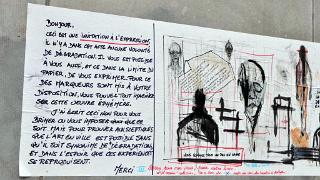 BONJOUR,
CECI EST UNE INVITATION À L'EXPRESSION,
IL N'Y A DANS CET ACTE AUCUNE VOLONTÉ
DE DÉGRADATION. IL VOUS EST POSSIBLE
À VOUS AUSSI, ET CE DANS LA LIMITE DU
PAPIER, DE VOUS EXPRIMER. POUR CE
DES MARQUEURS SONT MIS À VOTRE
DISPOSITION, VOUS POUVEZ TOUT
CETTE OEUVRE ÉPHÉMÈRE.
J'ÉCRIT CECI NON POUR VOUS
BRIMER OU VOUS IMPOSER QUOI QUE CE
SOIT. MAIS POUR PROUVER AUX SEPTIQUES
QUE L'ART EN VILLE EST POSSIBLE SANS
QU'IL SOIT SYNONYME DE DÉGRADATION,
ET DANS L'ESPOIR QUE CES EXPÉRIENCES
SE REPRODUISENT.
MERCI